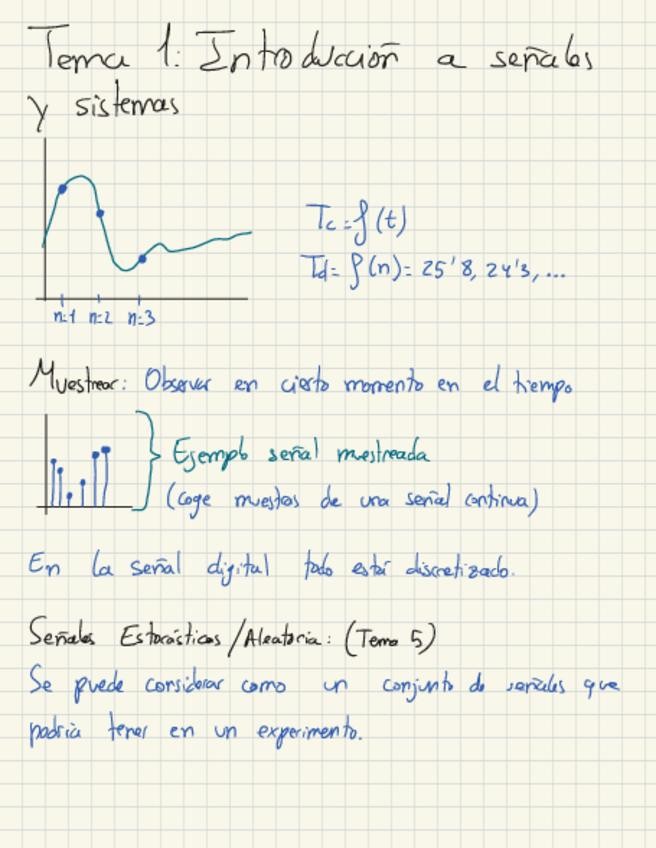 Tema 1: Introducción a señales
y sistemas
Tc = f(t)
Td = f(n) = 25'8, 24'3, ...
n=1 n=2 n=3
Muestrear: Observar en cierto momento en el tiempo
Ejemplo señal muestreada
(coge muestras de una señal continua)
En la señal digital todo está discretizado.
Señales Estocásticas/Aleatoria: (Tema 5)
Se puede considerar como un conjunto de señales que
podría tener en un experimento.